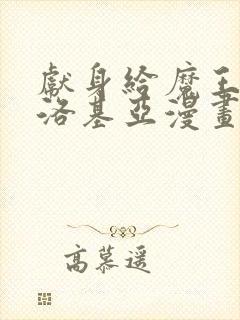 獻身給魔王伊
洛基亞漫畫
高慕遥